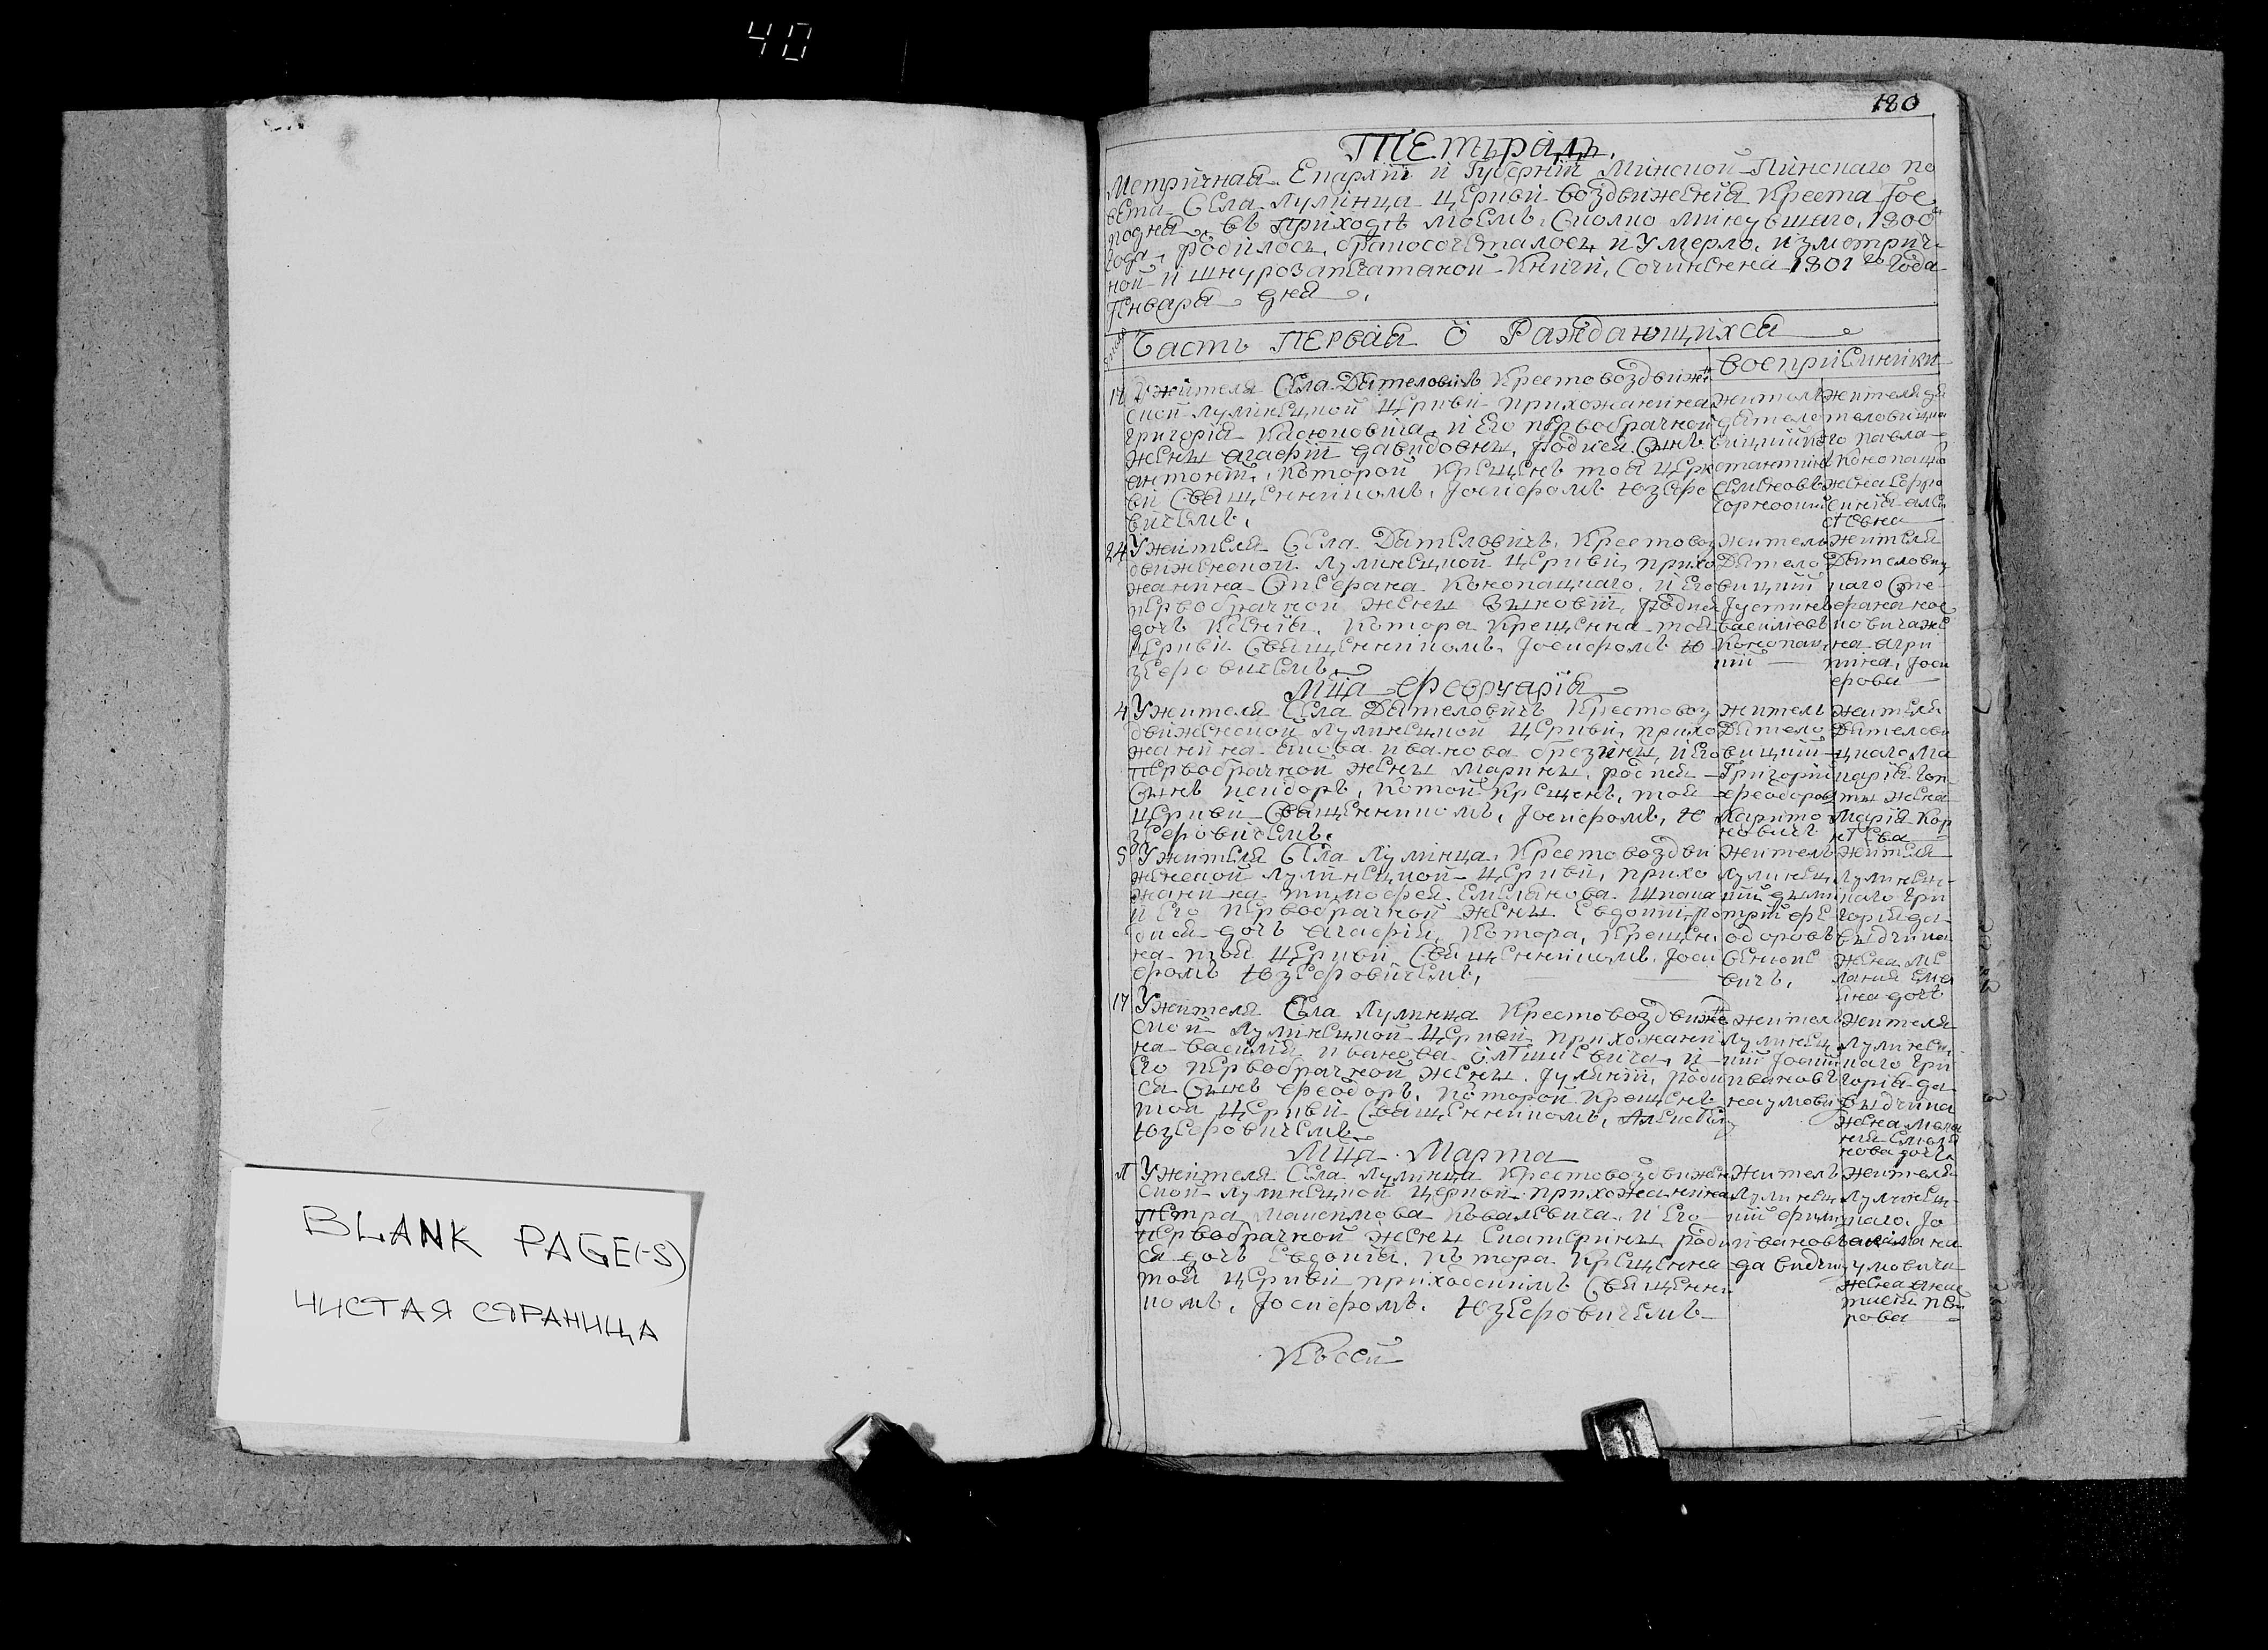 40
BLANK PAGE(-S)
ЧИСТАЯ СТРАНИЦА
180
Тетрадь
Метричная Епархіи и Губерніи Минской Пинскаго по
вета Села Лулинца Церкви Воздвиженія Креста Гос
подня, въ приходѣ моемъ, сколко минувшаго, 1800
года, родилось, бракосочеталось и умерло, из метрич
ной и шнурозапечатаной Книги, Сочиненна 1801 го Года
Генваря дня
Часть Первая о Раждающихся
Восприемники
У жителя Села Дятеловичъ Крестовоздвиже
ской Лулинецкой Церкви прихожанина
Григорія Касюковича, и Его первобрачной
жены Агафіи Давидовны, родися Сынъ
антоній, которой Крещенъ той Церк
ви Священникомъ, Іосифомъ Юзефо
вичемъ,
житель
дятело
вицкій
жителя дя
теловицка
го павла
жена
24 У жителя Села Дятеловичъ, Крестовоз
движенской Лулинецкой Церкви, прихо
жанина Стефана Конопацкаго, и Его
первобрачной жены Зиновіи, родися
дочь Ксенія, котора Крещенна той
Церкви Священникомъ, Іосифомъ Ю
зефовичемъ
житель
Дятело
вицкій
Іустинъ
василіевъ
Конопац
кій
жителя
Дятелович
каго Сте
фана кос
ковича же
на агри
пина, Іоси
фова
Мца Февруарія
4 У жителя Села Дятеловичъ Крестовоз
движенской Лулинецкой Церкви, прихо
жанина Якова иванова Брезины, и Его
первобрачной жены марины, родися
Сынъ исидоръ, котой Крещенъ, той
Церкви Священникомъ, Іосифомъ, Ю
зефовичемъ,
житель
Дятело
вицкій
Григорій
феодоровъ
Харито
новичъ
жителя
Дятелови
цкаго Ма
карія Гон
ты жена
Марія Кор
нѣева
5 У жителя Села Лулинца, Крестовоздви
женской Лулинецкой Церкви, прихо
жанина тимофея Емелянова Шпака
и Его первобрачной жены Евдокіи, ро
дися дочь агафія, котора, Крещен
на той Церкви Священникомъ, Іоси
фомъ Юзефовичемъ,
житель
Лулинец
кій дими
трій фе
одоровъ
вичъ,
жителя
Лулинец
каго Гри
горія да
выдчика
жена ме
ланія
дочь
17 У жителя Села Лулинца Крестовоздвиже
ской Лулинецкой Церкви, прихожани
на василія иванова Олѣшкевича, и
Его первобрачной жены Іуліяніи, роди
ся Сынъ Феодоръ, которой Крещенъ
той Церкви Священникомъ,
Юзефовичемъ
житель
Лулинец
кій
ивановъ
наумови
жителя
Лулинец
каго Гри
горія да
выдчика
жена мела
нія Емеля
нова дочь
Мца Марта
У жителя Села Лулинца Крестовоздвижен
ской Лулинецкой церкви прихожанина
Петра максимова Ковалевича, и Его
первобрачной жены Екатерины, роди
ся дочь Евдокія, котора Крещенна
той Церкви приходскимъ Священни
комъ, Іосифомъ, Юзефовичемъ
житель
Лулинец
кій фили
ивановъ
давидчи
жителя
Лулинец
каго, Іо
умовича
жена анас
тасія пет
рова